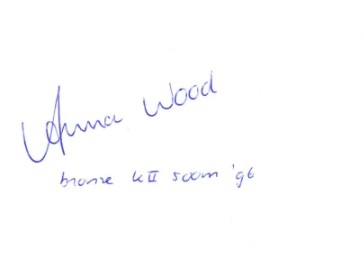 Anna Wood
bronze KII 500m '96